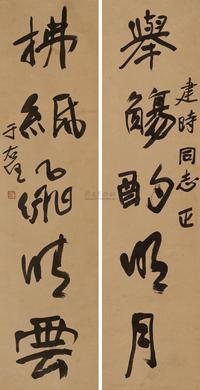 舉觴酌明月
建時同志正
拂紙飛晴雲
于右任